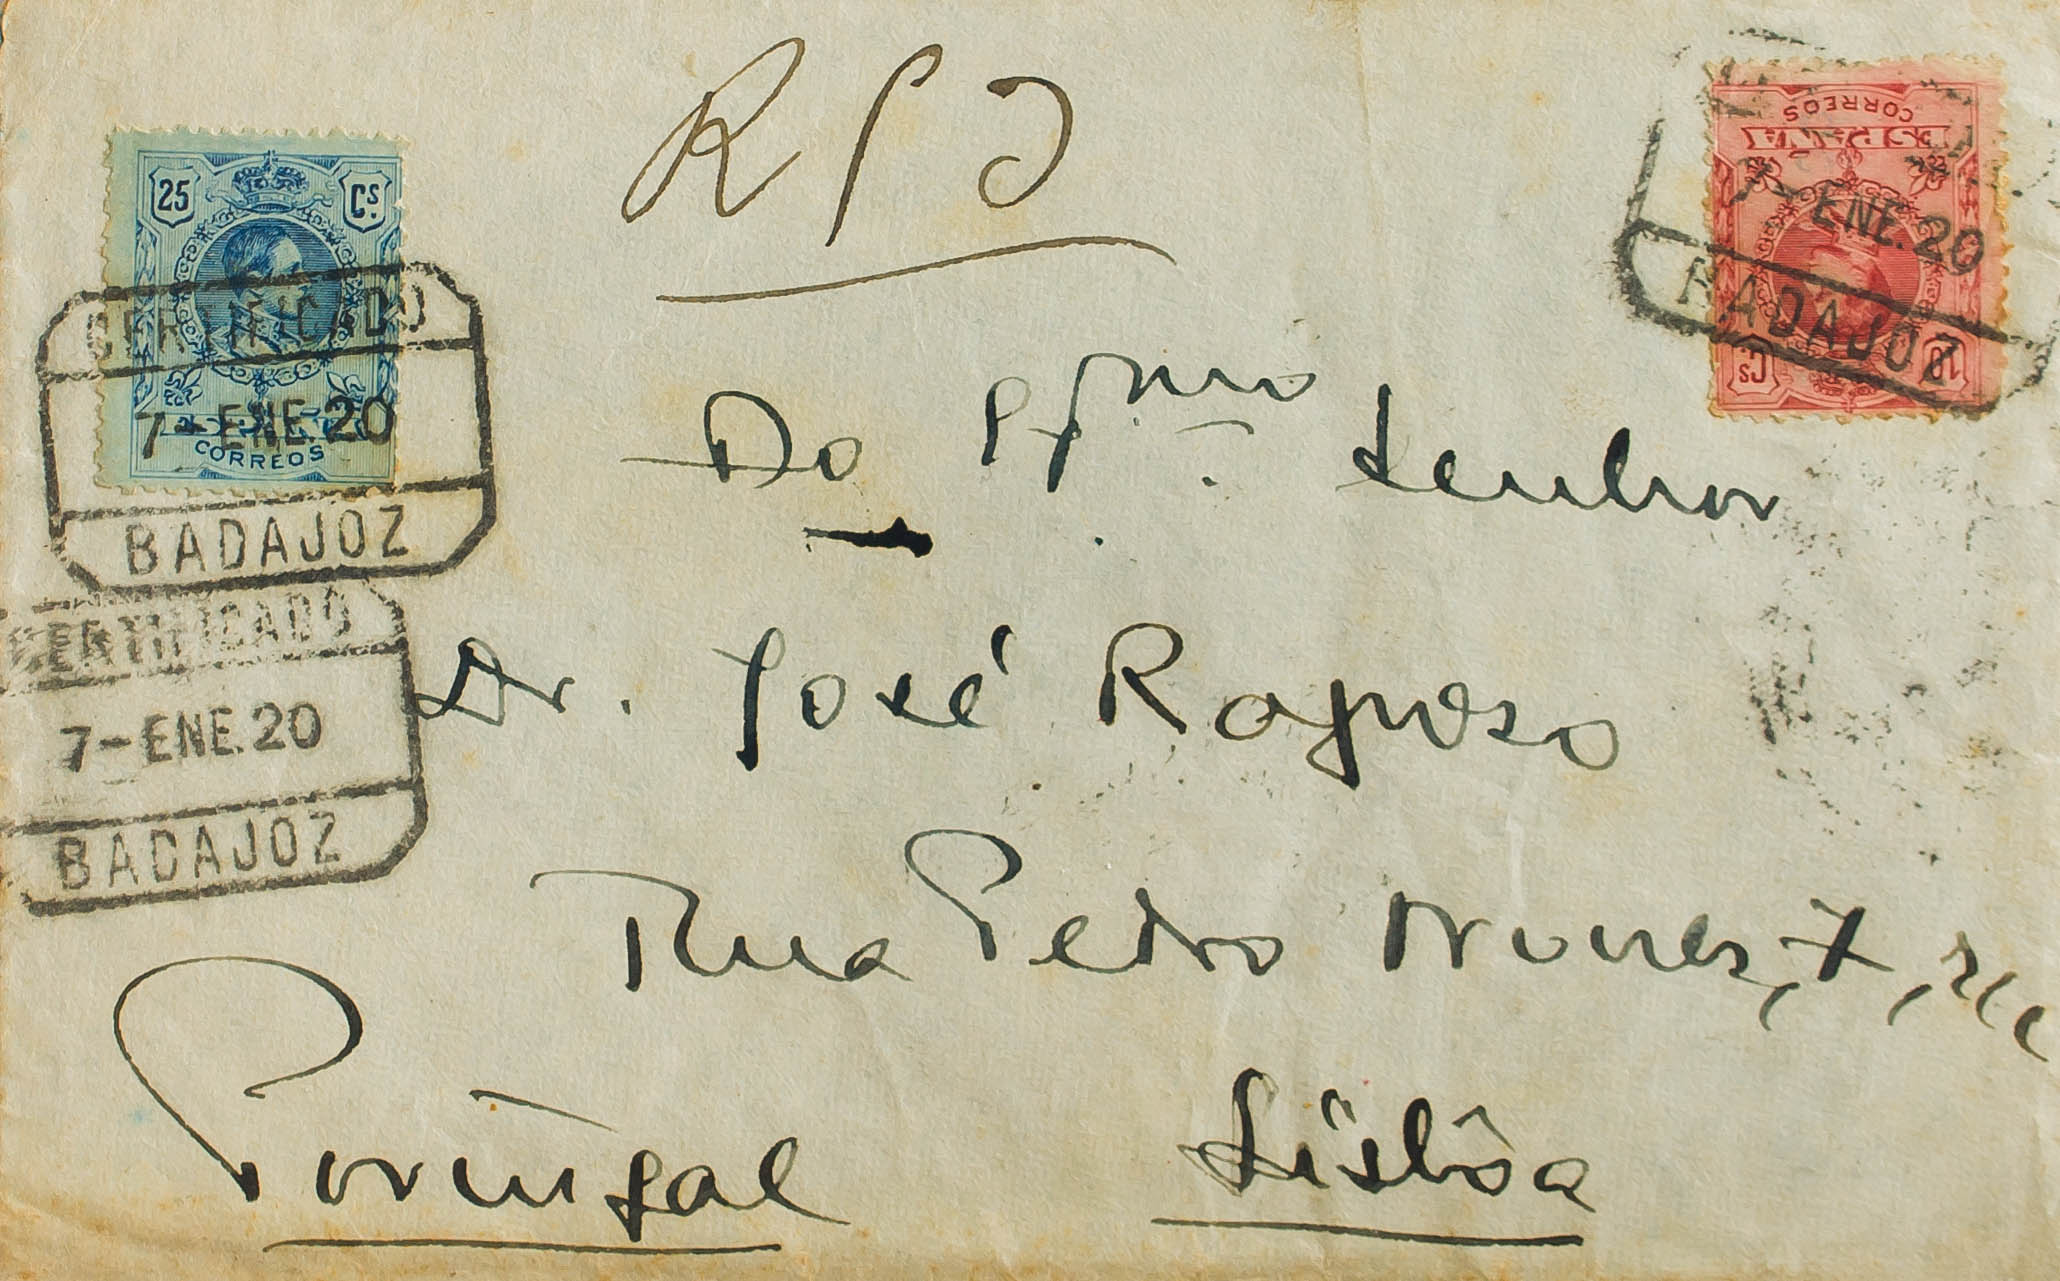 R
25 Cs.
CORREOS
CERTIFICADO
7-ENE.20
BADAJOZ
CERTIFICADO
7-ENE.20
BADAJOZ
ESPAÑA
CORREOS
10 Cs
7-ENE.20
BADAJOZ
Do Senhor
Dr. José Raposo
Rua Pedro Nunes, 7,
Lisbôa
Portugal